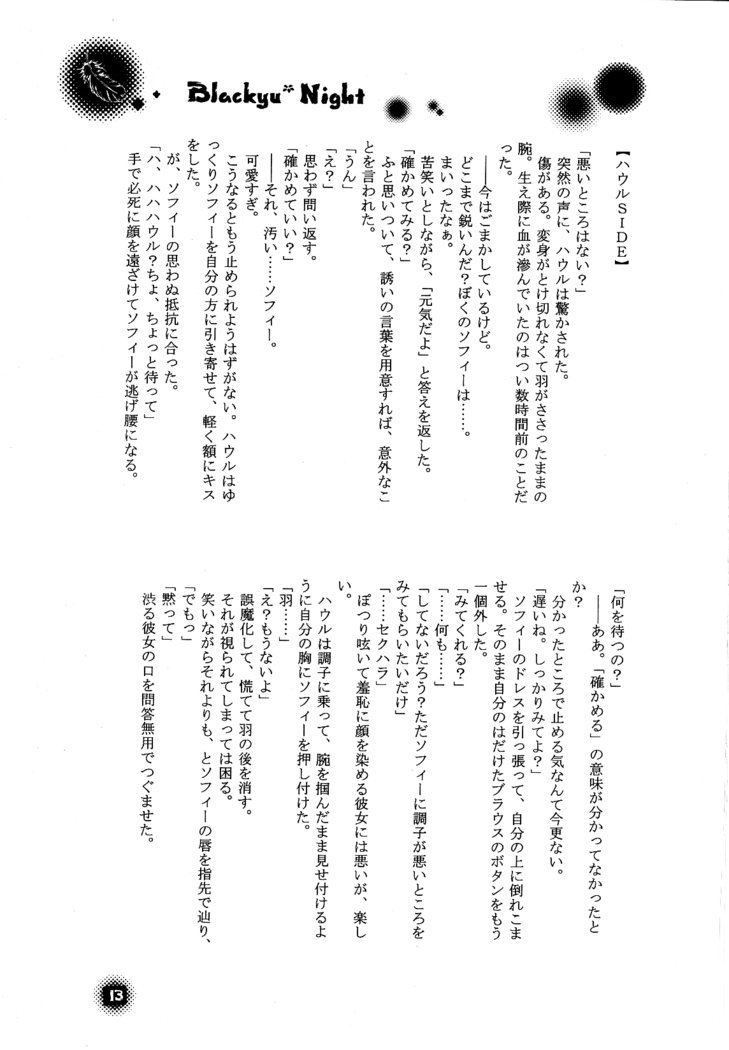 Blackyu Night
【ハウルSIDE】
「悪いところはない？」
突然の声に、ハウルは驚かされた。
傷がある。変身がとけ切れなくて羽がささったままの
腕。生え際に血が滲んでいたのはつい数時間前のことだ
った。
――今はごまかしているけど。
どこまで鋭いんだ？ぼくのソフィーは……。
まいったなぁ。
苦笑いとしながら、「元気だよ」と答えを返した。
「確かめてみる？」
ふと思いついて、誘いの言葉を用意すれば、意外なこ
とを言われた。
「うん」
「え？」
思わず問い返す。
「確かめていい？」
――それ、汚い……ソフィー。
可愛すぎ。
こうなるともう止められようはずがない。ハウルはゆ
っくりソフィーを自分の方に引き寄せて、軽く額にキス
をした。
が、ソフィーの思わぬ抵抗に合った。
「ハ、ハハハウル？ちょ、ちょっと待って」
手で必死に顔を遠ざけてソフィーが逃げ腰になる。
「何を待つの？」
――ああ。「確かめる」の意味が分かってなかったと
か？
分かったところで止める気なんて今更ない。
「遅いね。しっかりみてよ？」
ソフィーのドレスを引っ張って、自分の上に倒れこま
せる。そのまま自分のはだけたブラウスのボタンをもう
一個外した。
「みてくれる？」
「……何も……」
「してないだろう？ただソフィーに調子が悪いところを
みてもらいたいだけ」
「……セクハラ」
ぽつり呟いて羞恥に顔を染める彼女には悪いが、楽し
い。
ハウルは調子に乗って、腕を掴んだまま見せ付けるよ
うに自分の胸にソフィーを押し付けた。
「羽……」
「え？もうないよ」
誤魔化して、慌てて羽の後を消す。
それが視られてしまっては困る。
笑いながらそれよりも、とソフィーの唇を指先で辿り、
「でもっ」
「黙って」
渋る彼女の口を問答無用でつぐませた。
13